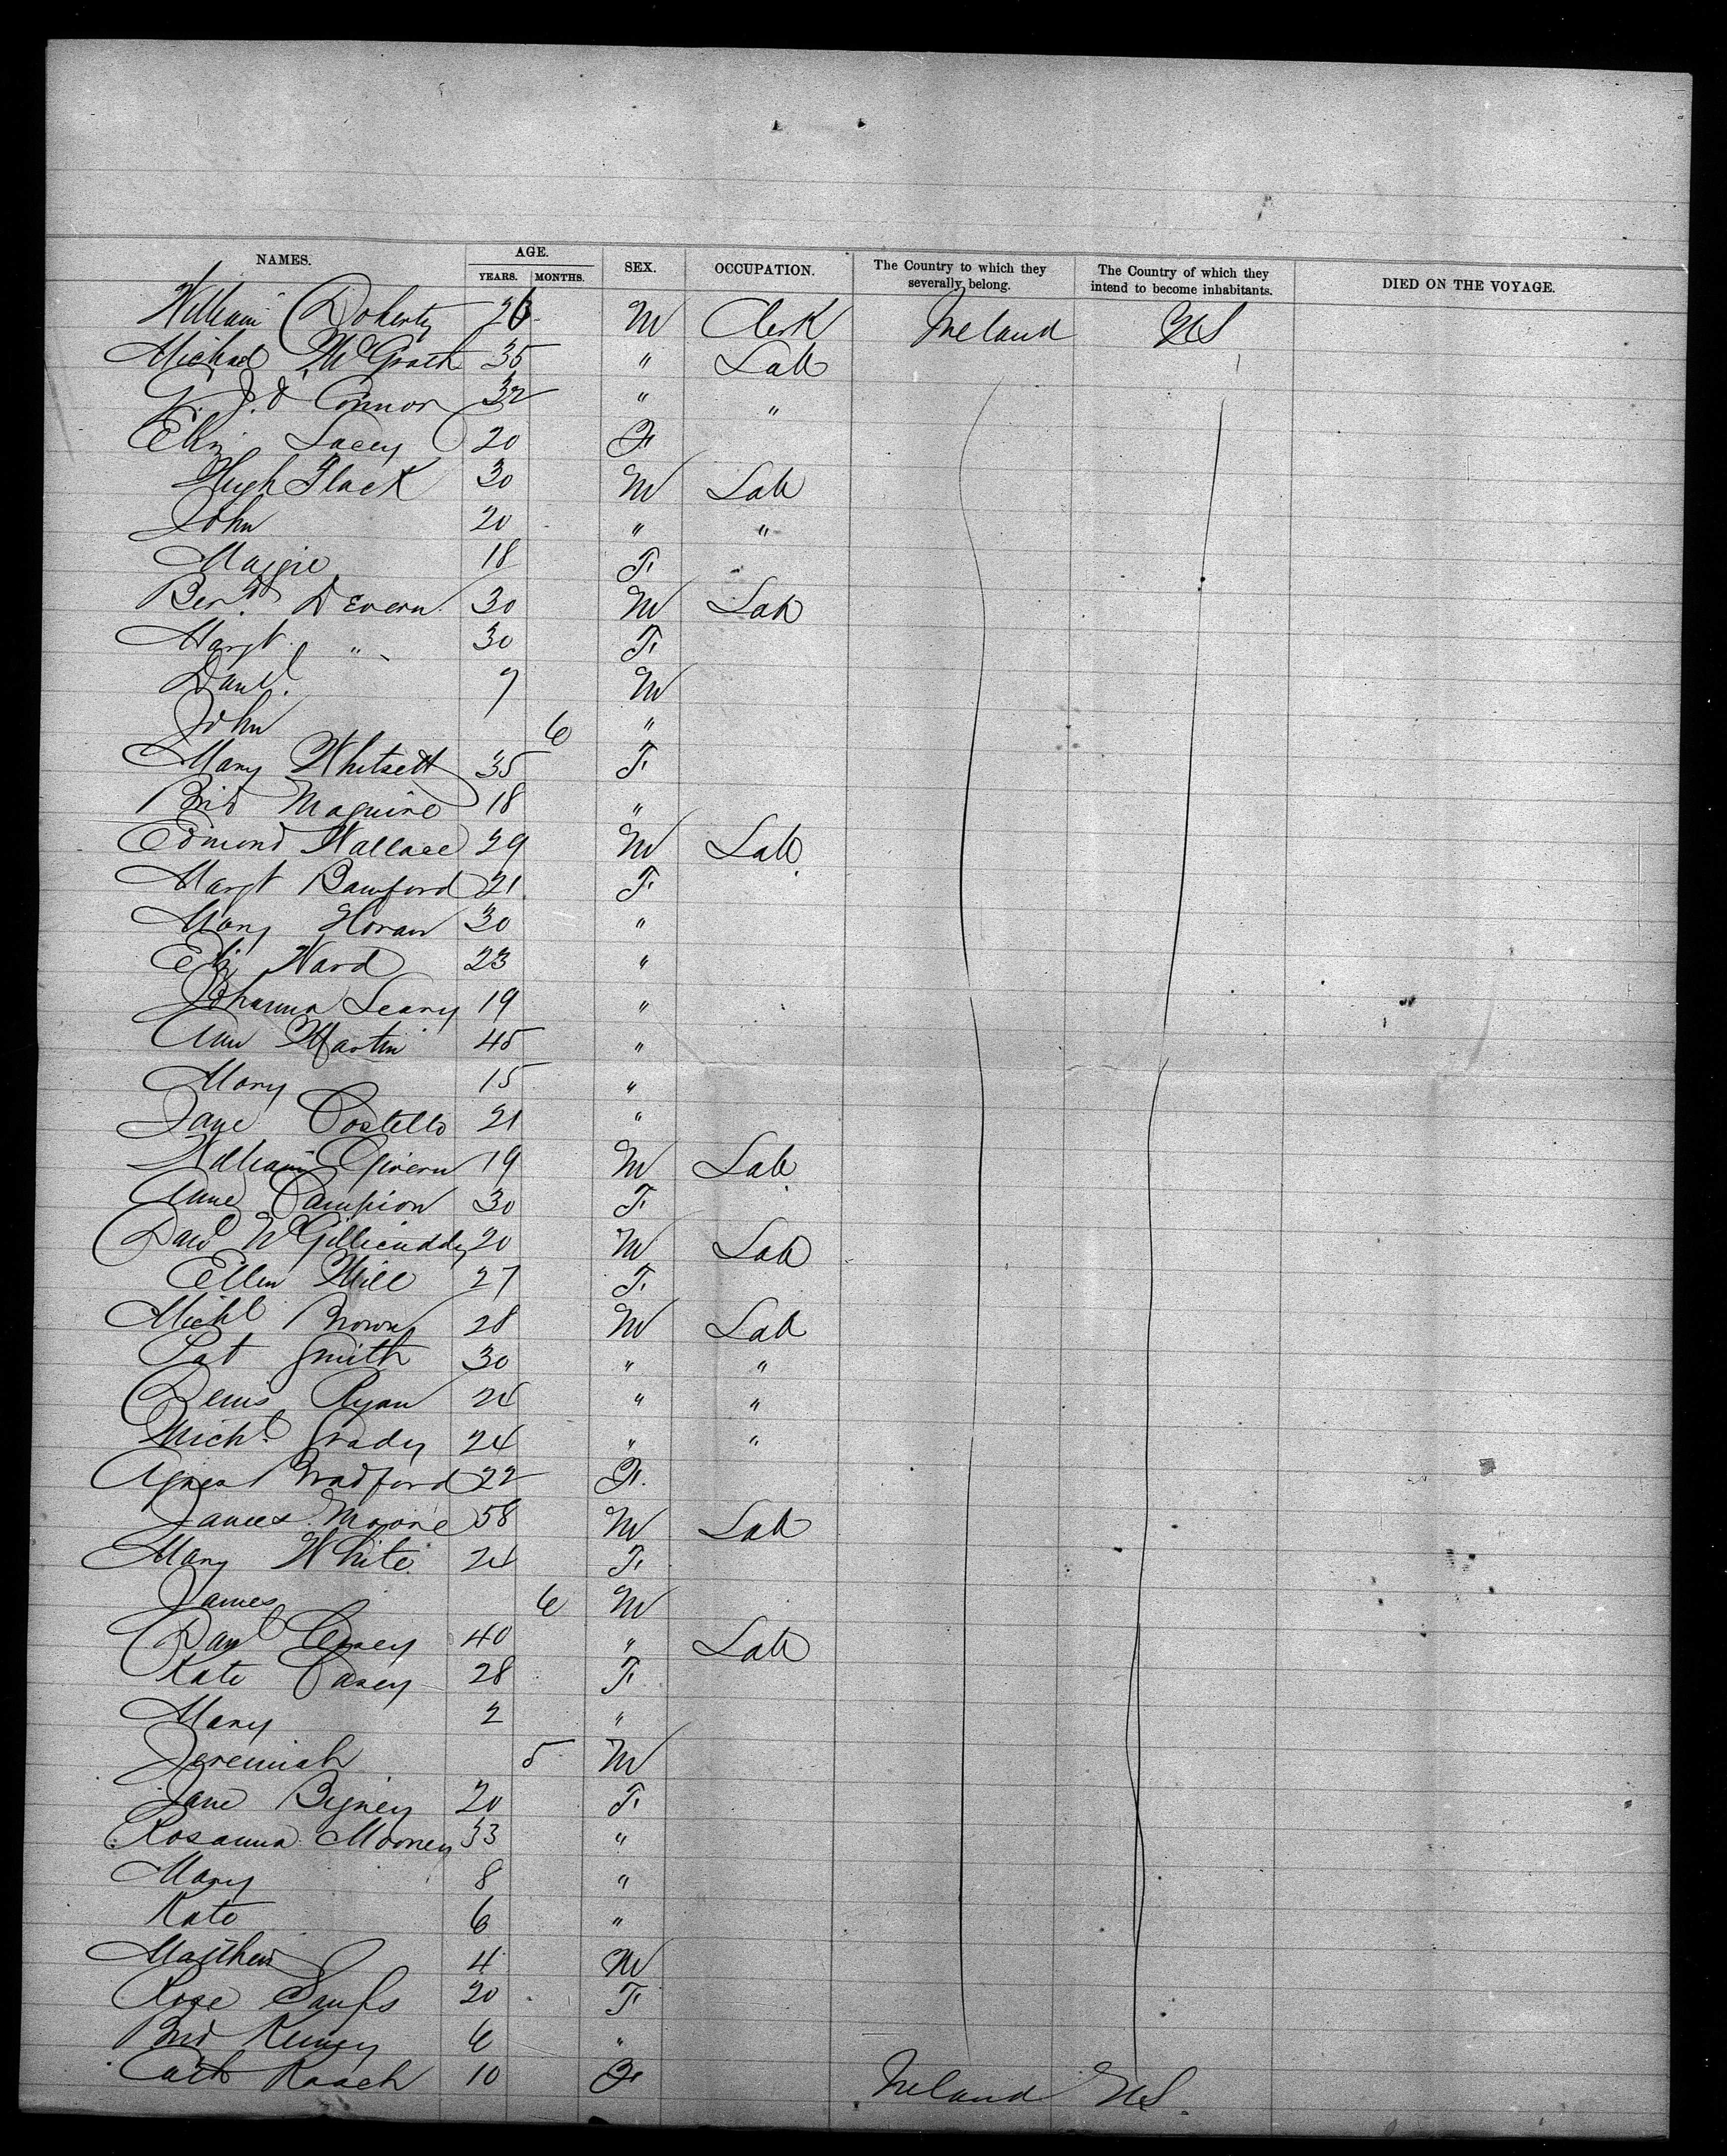 NAMES. AGE. YEARS. MONTHS. SEX. OCCUPATION. The Country to which they severally belong. The Country of which they intend to become inhabitants. DIED ON THE VOYAGE.
William Doherty 26 M Clerk Ireland US
Michael McGrath 35 " Lab
J. O Connor 32 " "
Eliz Lacey 20 F
Hugh Flack 30 M Lab
John 20 " "
Maggie 18 F
Bern.d Devern 30 M Lab
Margt " 30 F
Danl. 7 M
John 6 "
Mary Whitsett 35 F
Brid Maguire 18 "
Edmond Wallace 29 M Lab
Margt Bamford 21 F
Mary Horan 30 "
Eliz Ward 23 "
Johanna Leary 19 "
Ann Martin 45 "
Mary 15 "
Jane Costello 21 "
William Givern 19 M Lab
Anne Campion 30 F
Danl McGillicuddy 20 M Lab
Ellen Hill 27 F
Michl Brown 28 M Lab
Pat Smith 30 " "
Denis Ryan 24 " "
Michl. Grady 24 " "
Agnes Bradford 22 F.
James Moore 58 M Lab
Mary White 24 F
James 6 M
Danl Casey 40 " Lab
Kate Casey 28 F
Mary 2 "
Jeremiah 5 M
Jane Bigney 20 F
Rosanna Mooney 33 "
Mary 8 "
Kate 6 "
Matthew 4 M
Rose 20 F
Brid 6 "
Cath Roach 10 F Ireland US.